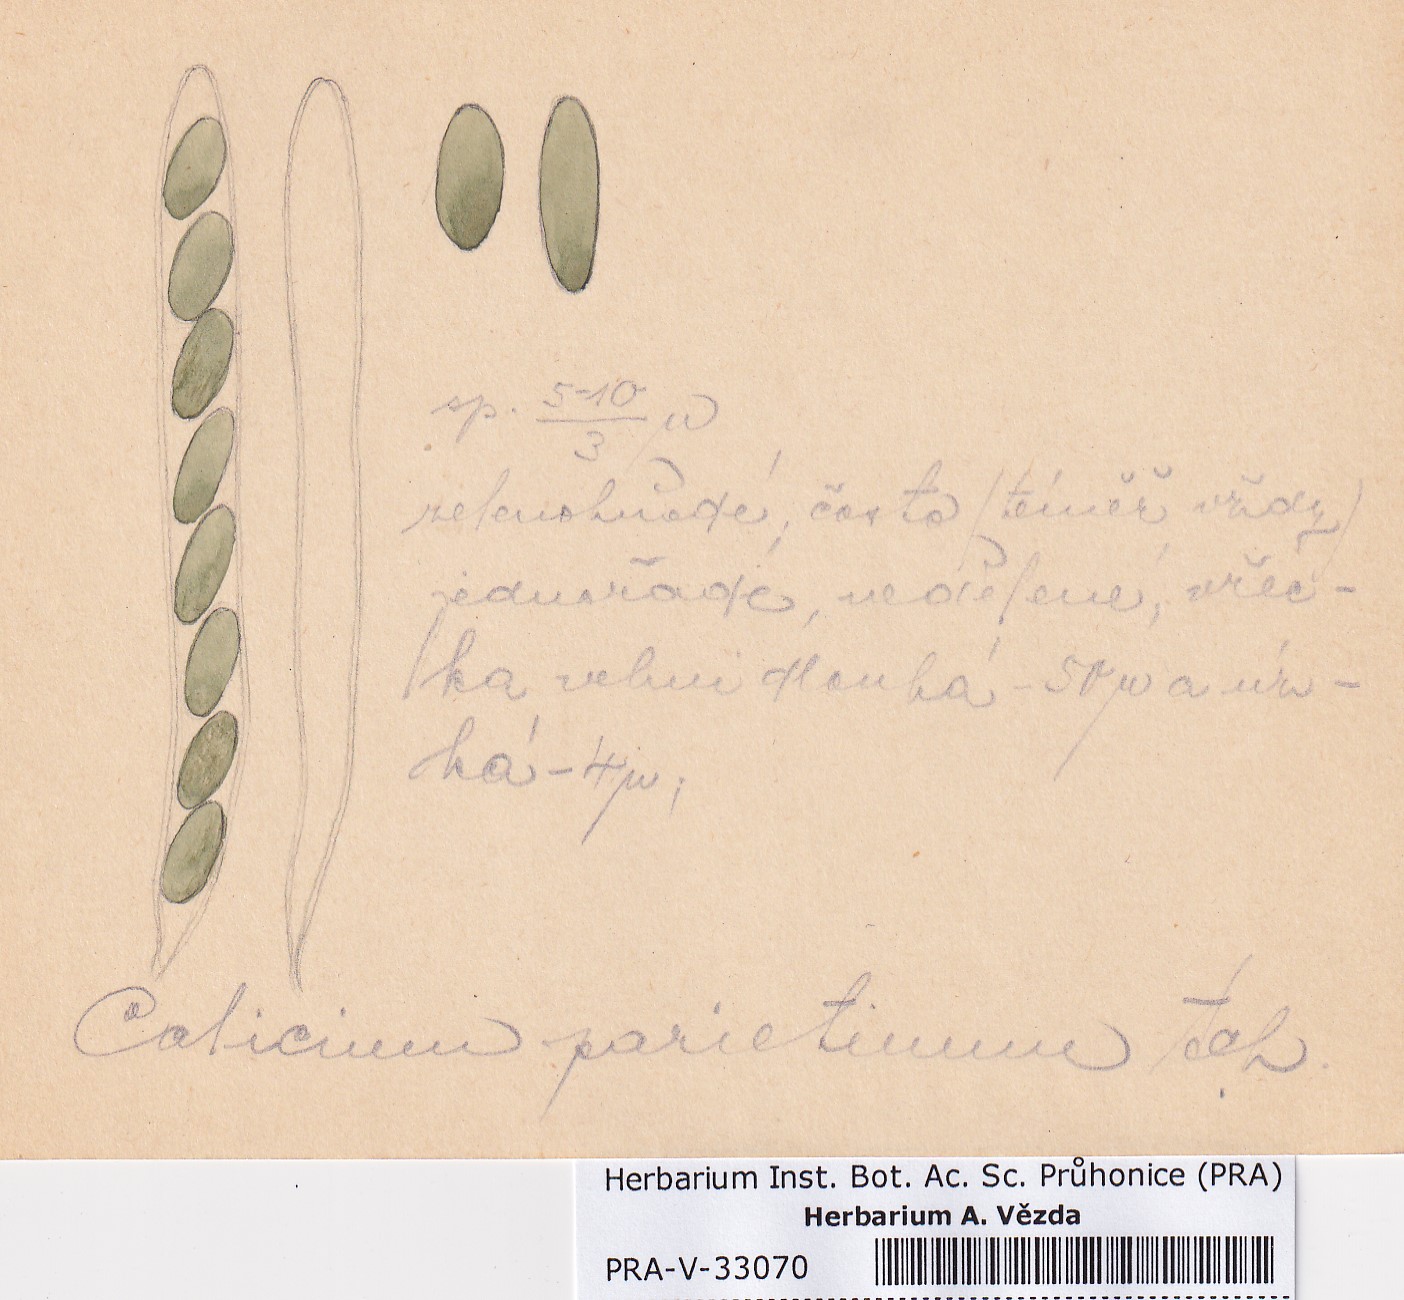 sp. 5-10/3 μ
zelenohnědé, často (téměř vždy)
jednořadé, nedělené, vřec-
ka velmi dlouhá - 50μ a úz-
ká - 4μ;
Calicium parietinum Ach.
Herbarium Inst. Bot. Ac. Sc. Průhonice (PRA)
Herbarium A. Vězda
PRA-V-33070